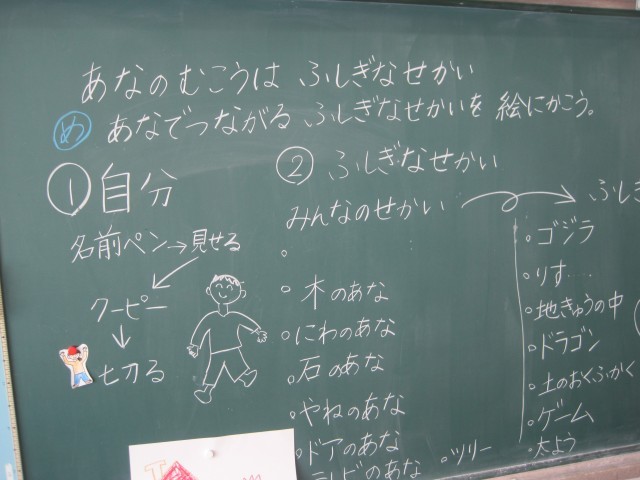 あなのむこうは ふしぎなせかい
め あなでつながる ふしぎなせかいを 絵にかこう。
① 自分
名前ペン→見せる
クーピー
切る
② ふしぎなせかい
みんなのせかい
。
。木のあな
。にわのあな
。石のあな
。やねのあな
。ドアのあな
。テレビのあな
。ツリー
ふしぎ
。ゴジラ
。りす…
。地きゅうの中
。ドラゴン
。土のおくふかく
。ゲーム
。太よう